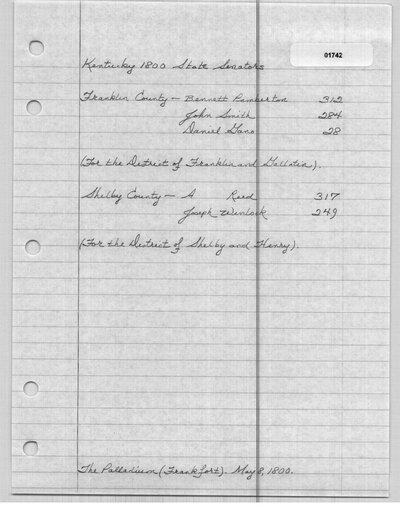 01742
Kentucky 1800 State Senators
Franklin County — Bennett Pemberton 312
John Smith 284
Daniel Gano 28
(For the District of Franklin and Gallatin).
Shelby County — A Reed 317
Joseph Winlock 249
(For the District of Shelby and Henry).
The Palladium (Frankfort). May 8, 1800.